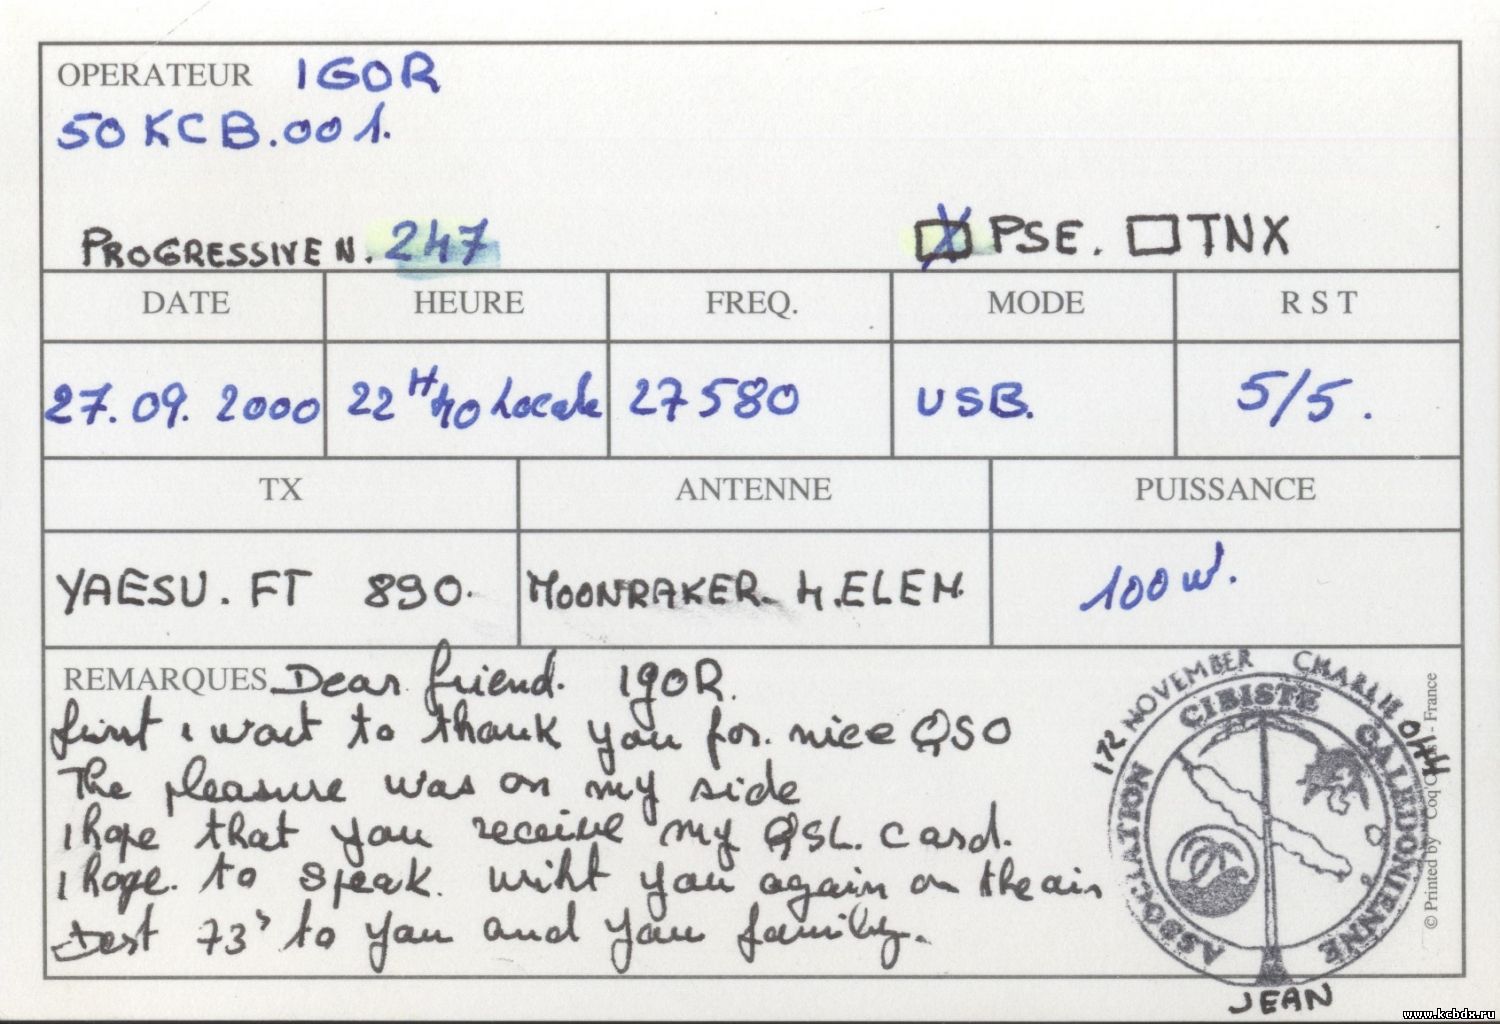 OPERATEUR IGOR
50 KCB.001.
PROGRESSIVE N. 247 X PSE. TNX
DATE HEURE FREQ. MODE R S T
27.09.2000 22H40 Locale 27580 USB. 5/5.
TX ANTENNE PUISSANCE
YAESU. FT 890. MOONRAKER. 4.ELEM. 100W.
REMARQUES Dear friend. IgOR.
first i want to thank you for. nice QSO
The pleasure was on my side
I hope that you receive my QSL. card.
I hope. to speak. wiht you again on the air
Best 73's to you and you family.
172 NOVEMBER CHARLIE 044
ASSOCIATION CIBISTE CALEDONIENNE
JEAN
© Printed by Coq - France
www.kcbdx.ru